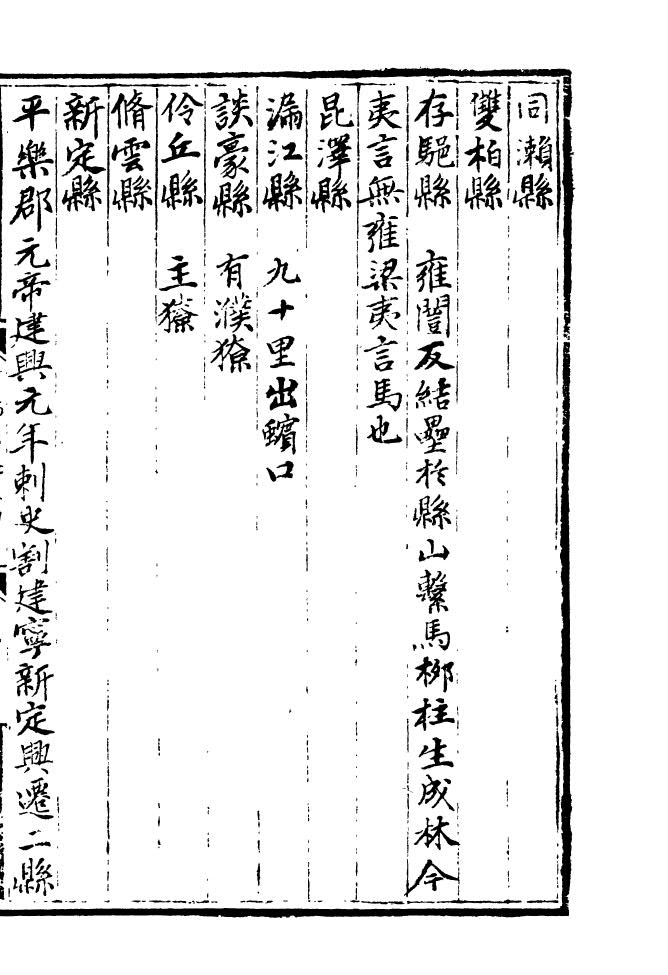 同瀨縣
雙柏縣
存䣕縣 雍闓反結壘於縣山繫馬柳柱生成林今
夷言無雍梁夷言馬也
昆澤縣
漏江縣 九十里出蝮口
談稾縣 有濮獠
伶丘縣 主獠
脩雲縣
新定縣
平樂郡元帝建興元年刺史割建寧新定興遷二縣